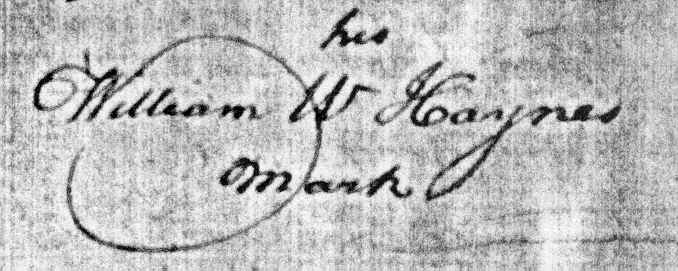 his
William W Haynes
Mark